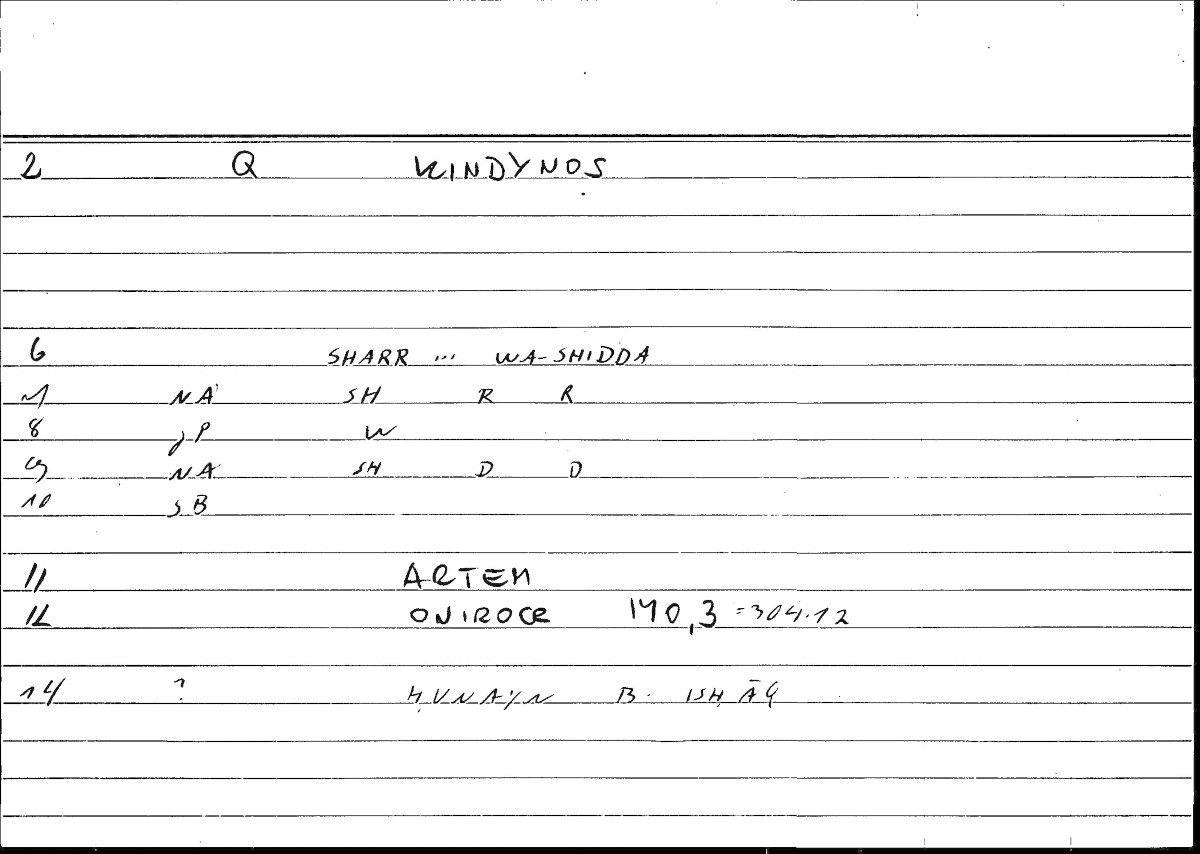 2 Q KINDYNOS
6 SHARR ... WA-SHIDDA
7 NA SH R R
8 JP W
9 NA SH D D
10 SB
11 ARTEM
12 ONIROCR 140,3 =304.12
14 ? ḤUNAYN B. ISḤĀQ